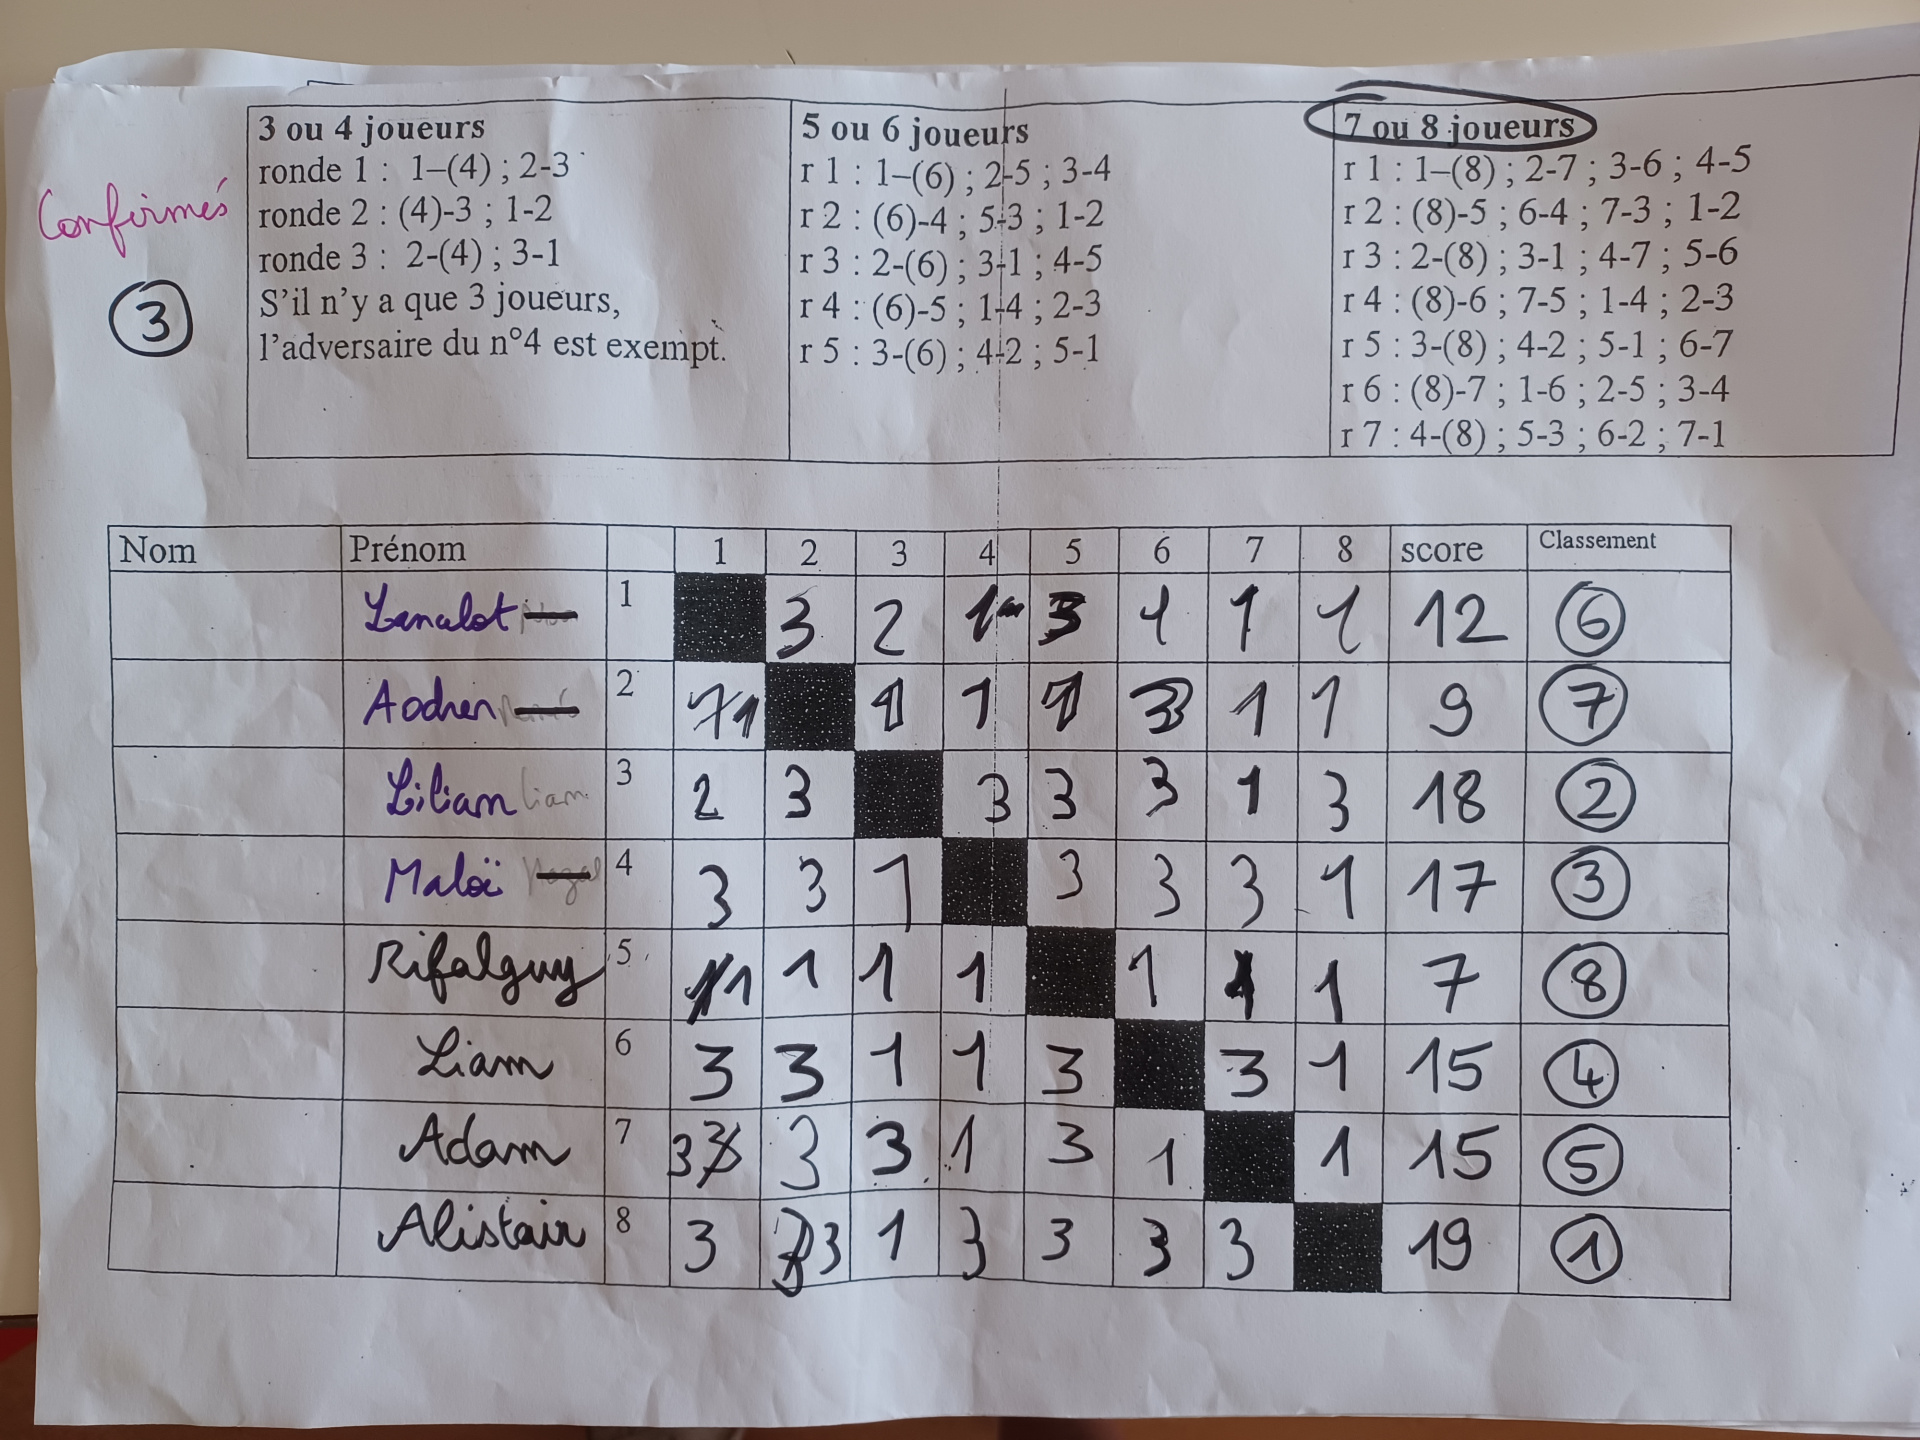 Confirmés
3
3 ou 4 joueurs
ronde 1 : 1–(4) ; 2-3
ronde 2 : (4)-3 ; 1-2
ronde 3 : 2-(4) ; 3-1
S'il n'y a que 3 joueurs,
l'adversaire du n°4 est exempt.
5 ou 6 joueurs
r 1 : 1–(6) ; 2-5 ; 3-4
r 2 : (6)-4 ; 5-3 ; 1-2
r 3 : 2-(6) ; 3-1 ; 4-5
r 4 : (6)-5 ; 1-4 ; 2-3
r 5 : 3-(6) ; 4-2 ; 5-1
7 ou 8 joueurs
r 1 : 1–(8) ; 2-7 ; 3-6 ; 4-5
r 2 : (8)-5 ; 6-4 ; 7-3 ; 1-2
r 3 : 2-(8) ; 3-1 ; 4-7 ; 5-6
r 4 : (8)-6 ; 7-5 ; 1-4 ; 2-3
r 5 : 3-(8) ; 4-2 ; 5-1 ; 6-7
r 6 : (8)-7 ; 1-6 ; 2-5 ; 3-4
r 7 : 4-(8) ; 5-3 ; 6-2 ; 7-1
Nom Prénom 1 2 3 4 5 6 7 8 score Classement
1 3 2 1 3 1 1 1 12 6
Aodren 2 1 1 1 1 3 1 1 9 7
Lilian liam 3 2 3 3 3 3 1 3 18 2
Maloï 4 3 3 1 3 3 3 1 17 3
Rifalguy 5 1 1 1 1 1 1 1 7 8
Liam 6 3 3 1 1 3 3 1 15 4
Adam 7 3 3 3 1 3 1 1 15 5
Alistair 8 3 3 1 3 3 3 3 19 1